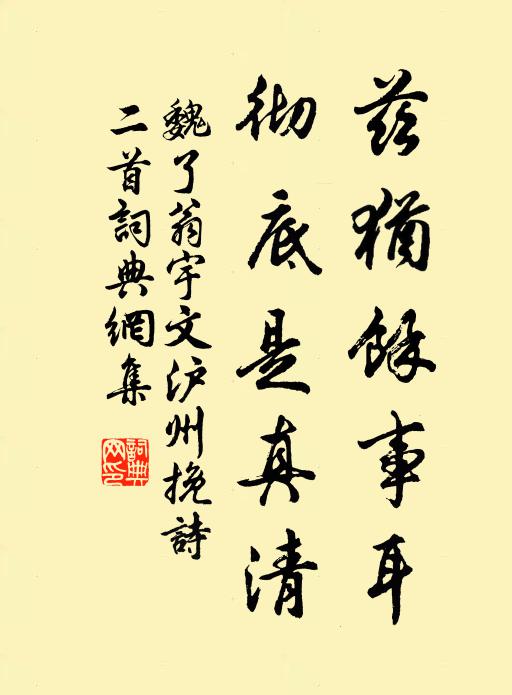 茲猶餘事耳
彻底是真清
魏了翁宇文泸州挽詩
二首詞典網集
詞典
网印